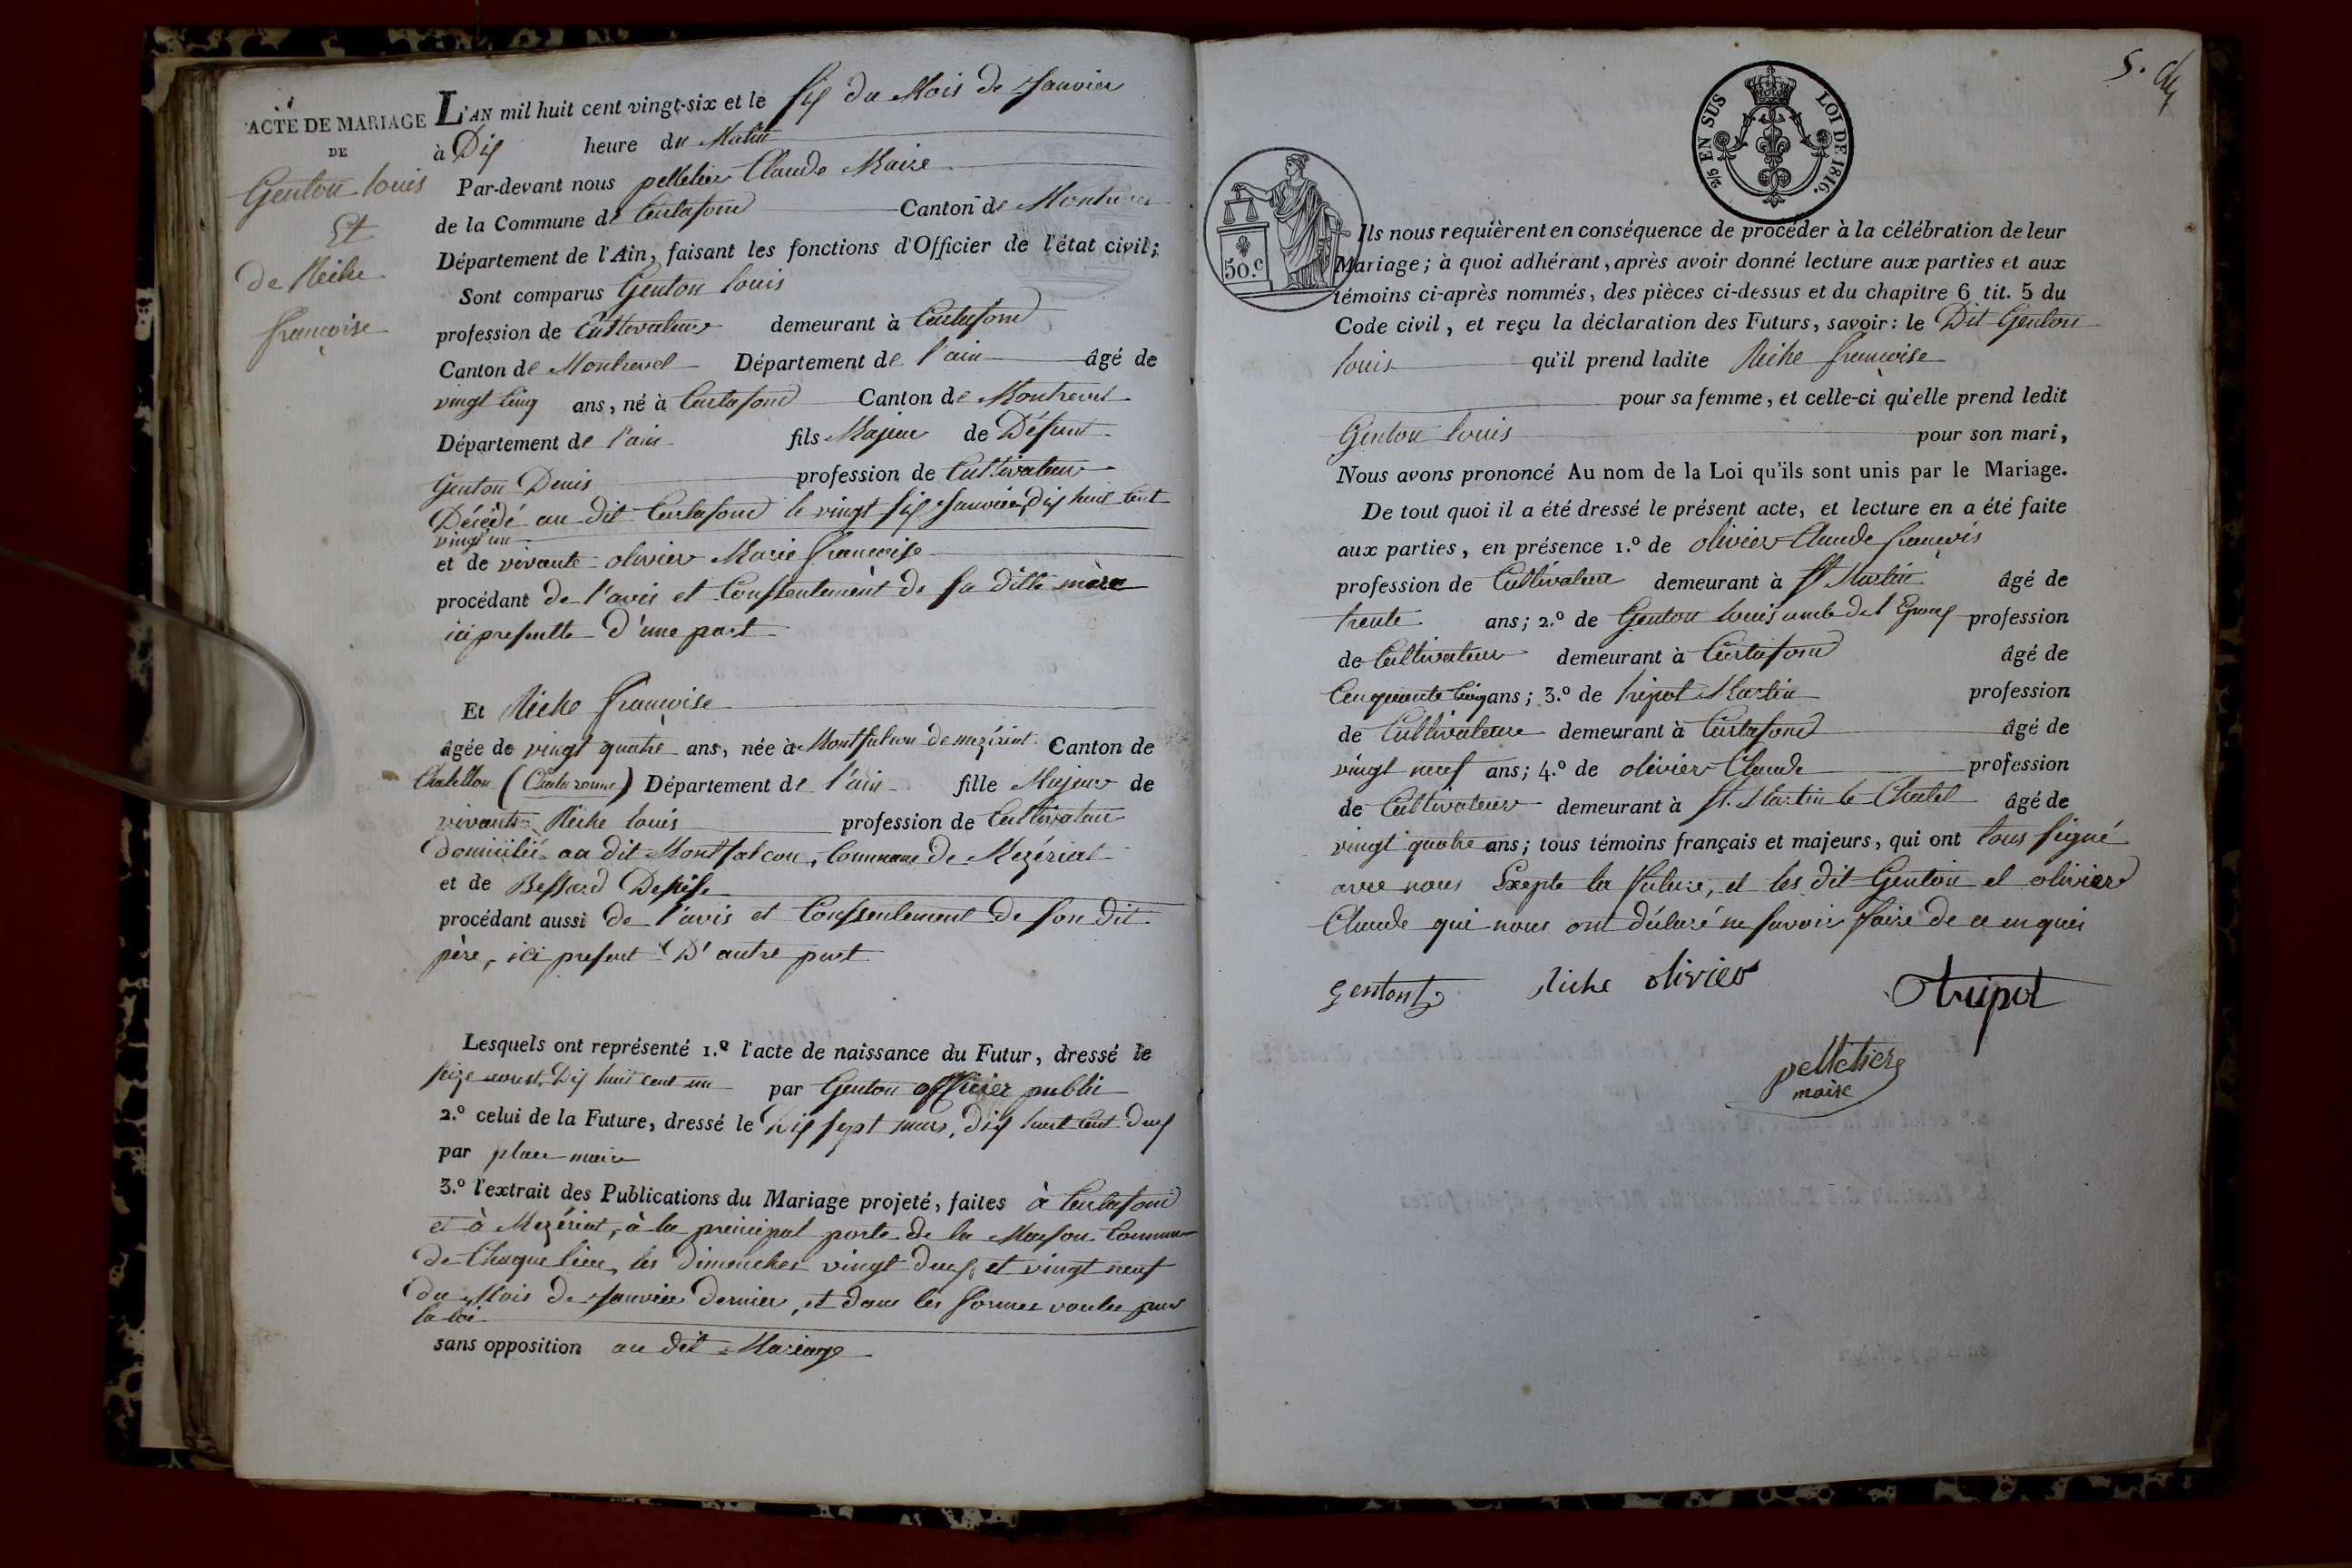 ACTE DE MARIAGE
DE
Genton louis
Et
de Riche
françoise
L'AN mil huit cent vingt-six et le six du Mois de Janvier
à Dix heure du Matin
Par-devant nous pelletier Claude Maire
de la Commune de Curtafond Canton de Montrevel
Département de l'Ain, faisant les fonctions d'Officier de l'état civil;
Sont comparus Genton louis
profession de Cultivateur demeurant à Curtafond
Canton de Montrevel Département de l'ain âgé de
vingt Cinq ans, né à Curtafond Canton de Montrevel
Département de l'ain fils Majeur de Défunt
Genton Denis profession de Cultivateur
Décédé au dit Curtafond le vingt six Janvier, dix huit Cent
vingt un
et de vivante olivier Marie françoise
procédant de l'avis et Consentement de sa ditte mère
ici presentte d'une part
Et Riche françoise
âgée de vingt quatre ans, née à Montfalcon de mezériat Canton de
Chatillon (Chalaronne) Département de l'ain fille Majeur de
vivant Riche louis profession de Cultivateur
Domicilié au dit Montfalcon, Commune de Mezériat
et de Bessard Denise
procédant aussi de l'avis et Consentement de son dit
père, ici present D'autre part
Lesquels ont représenté 1.º l'acte de naissance du Futur, dressé le
seize aoust, Dix huit cent un par Genton officier public
2.º celui de la Future, dressé le dix sept mars, dix huit Cent deux
par place maire
3.º l'extrait des Publications du Mariage projeté, faites à Curtafond
et à Mezériat, à la principal porte de la Maison Commune
de Chaque lieu, les dimenches vingt deux et vingt neuf
du Mois de Janvier dernier, et dans les formes voulue par
la loi
sans opposition au dit Mariage
5.
2/5 EN SUS LOI DE 1816.
50.c
Ils nous requièrent en conséquence de procéder à la célébration de leur
Mariage; à quoi adhérant, après avoir donné lecture aux parties et aux
témoins ci-après nommés, des pièces ci-dessus et du chapitre 6 tit. 5 du
Code civil, et reçu la déclaration des Futurs, savoir: le Dit Genton
louis qu'il prend ladite Riche françoise
pour sa femme, et celle-ci qu'elle prend ledit
Genton louis pour son mari,
Nous avons prononcé Au nom de la Loi qu'ils sont unis par le Mariage.
De tout quoi il a été dressé le présent acte, et lecture en a été faite
aux parties, en présence 1.º de olivier Claude françois
profession de Cultivateur demeurant à St Martin âgé de
trente ans; 2.º de Genton louis oncle de l'Epoux profession
de Cultivateur demeurant à Curtafond âgé de
Cinquante Cinq ans; 3.º de tripot Martin profession
de Cultivateur demeurant à Curtafond âgé de
vingt neuf ans; 4.º de olivier Claude profession
de Cultivateur demeurant à St. Martin le Chatel âgé de
vingt quatre ans; tous témoins français et majeurs, qui ont tous signé
avec nous Exepte la future, et les dit Genton et olivier
Claude qui nous ont déclaré ne savoir faire de ce enquis
gentont riche olivier tripot
pelletier
maire